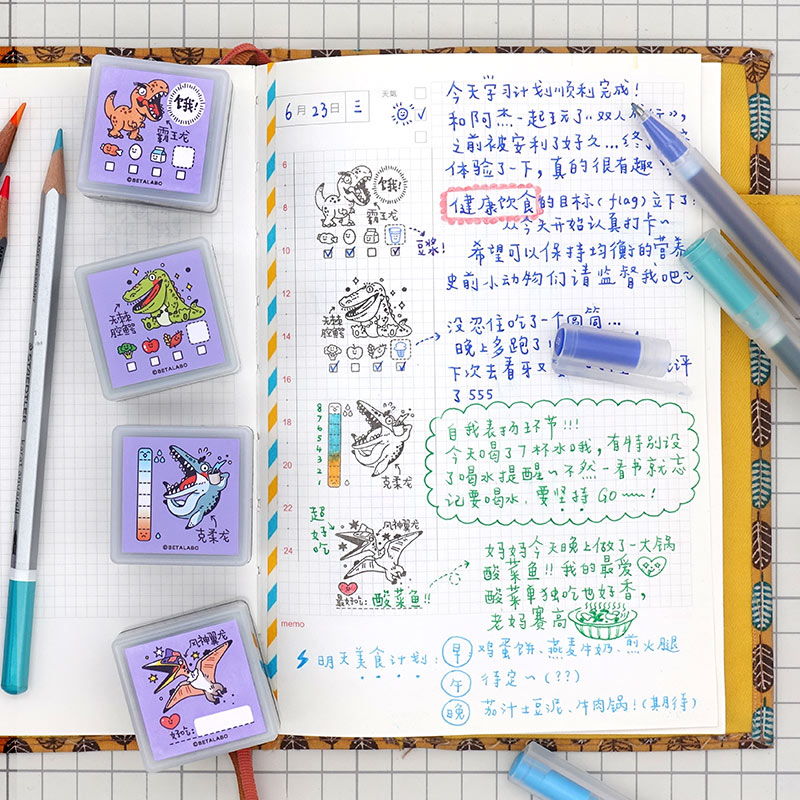 饿!
霸王龙
©BETALABO
无棘腔鳄
©BETALABO
克柔龙
©BETALABO
风神翼龙
好吃:
©BETALABO
STAEDTLER
6月23日 三
天氣
6
8
10
12
14
16
18
20
22
24
memo
饿!
霸王龙
豆浆!
无棘腔鳄
8
7
6
5
4
3
2
1
克柔龙
超好吃
风神翼龙
最好吃:酸菜鱼!!
今天学习计划顺利完成!
和阿杰一起玩了《双人行》,
之前被安利了好久…终
体验了一下,真的很有趣!
健康饮食的目标(flag)立下了:
从今天开始认真打卡~
希望可以保持均衡的营养
史前小动物们请监督我吧~
没忍住吃了一个圆筒…
晚上多跑了
下次去看牙又 评
了555
自我表扬环节!!!
今天喝了7杯水哦,有特别设
了喝水提醒~不然一看书就忘
记要喝水,要坚持GO~!
妈妈今天晚上做了一大锅
酸菜鱼!!我的最爱
酸菜单独吃也好香,
老妈赛高
明天美食计划:
早 鸡蛋饼、燕麦牛奶、煎火腿
午 待定~(??)
晚 茄汁土豆泥、牛肉锅!(期待)